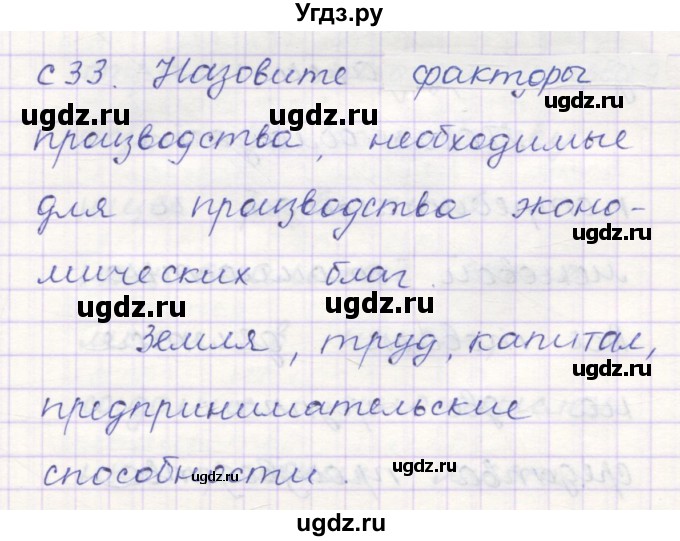 Угдз.ру
с 33. Назовите факторы
ugdz.ru ugdz.ru
производства, необходимые
ugdz.ru
для производства эконо-
ugdz.ru
мических благ.
ugdz.ru ugdz.ru
Земля, труд, капитал,
ugdz.ru
предпринимательские
способности.
ugdz.ru ugdz.ru
ugdz.ru